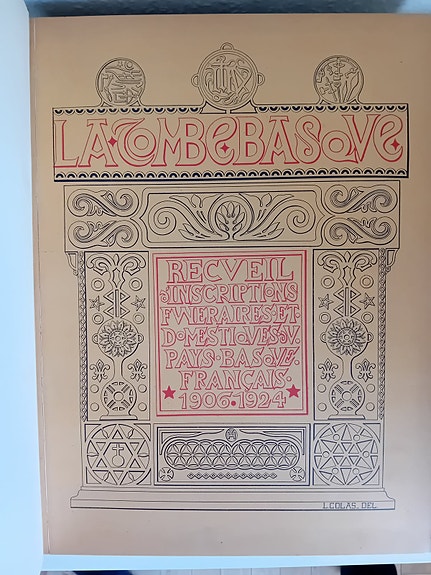 LA·TOMBE·BASQVE
RECVEIL
D'INSCRIPTIONS
FVNERAIRES·ET·
DOMESTIQVES·DV·
PAYS·BASQVE·
FRANÇAIS·
1906·1924
L.COLAS. DEL.